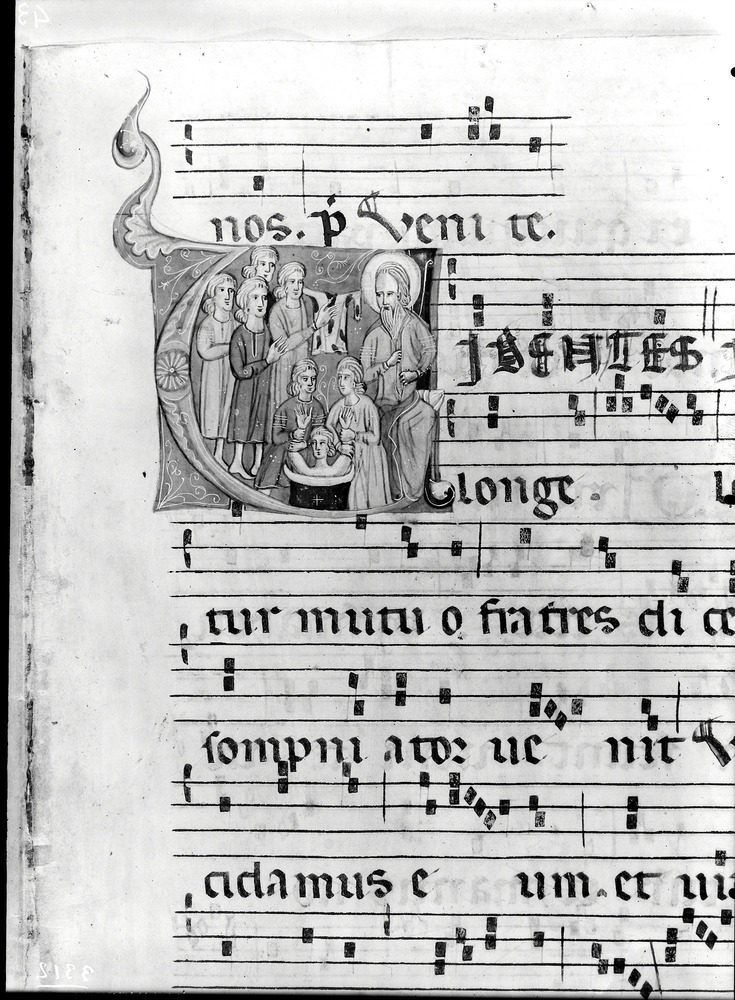 nos. p̄ Venite.
IDENTES
alonge.
tur mutuo fratres dice
sompniator uenit
cidamus eum. et ui